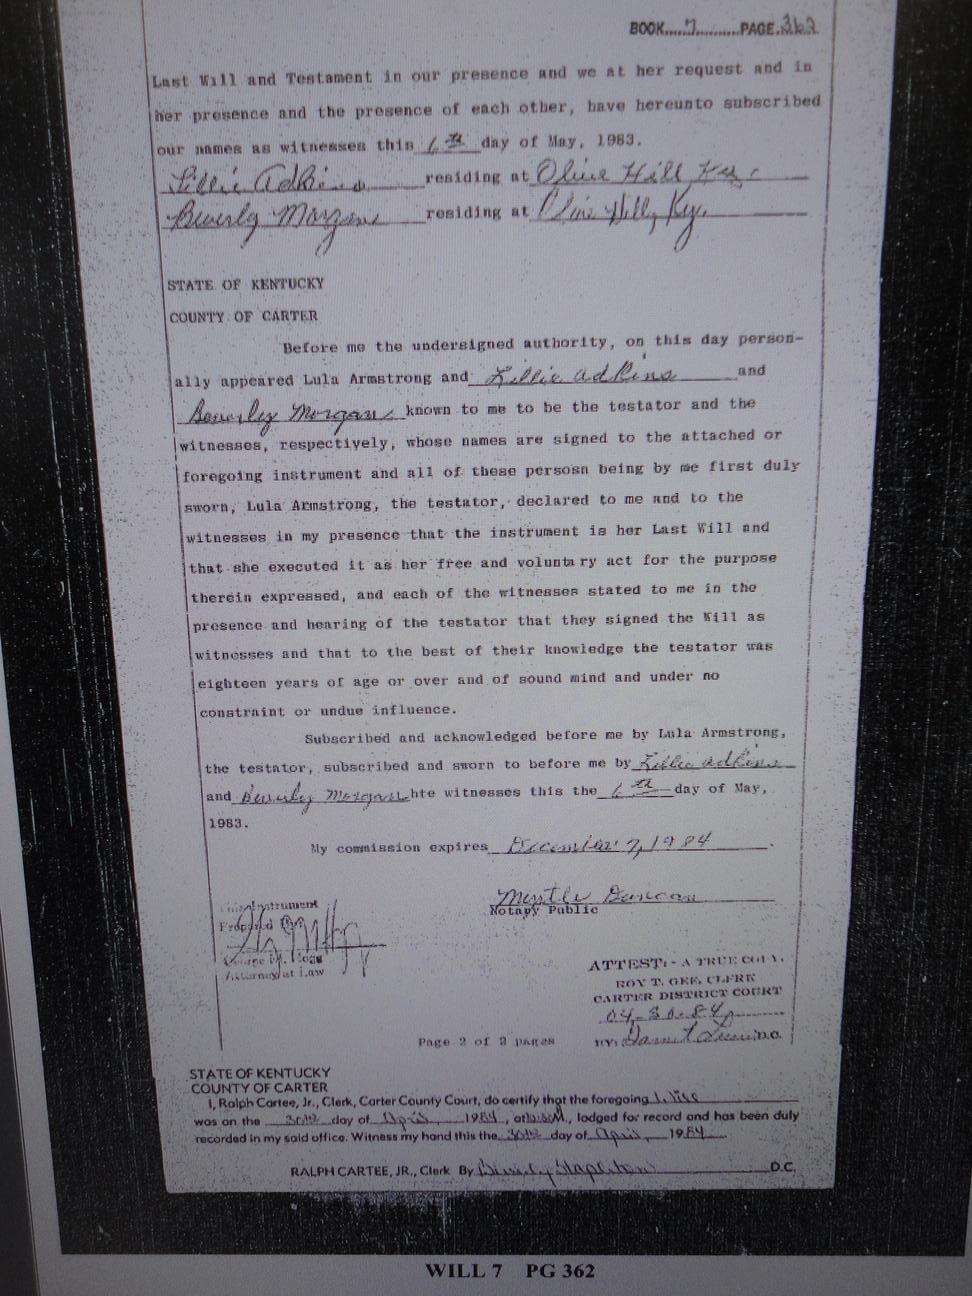 BOOK.....7..........PAGE.362
Last Will and Testament in our presence and we at her request and in
her presence and the presence of each other, have hereunto subscribed
our names as witnesses this 6th day of May, 1983.
Lillie Adkins residing at Olive Hill Ky.
Beverly Morgan residing at Olive Hill, Ky.
STATE OF KENTUCKY
COUNTY OF CARTER
Before me the undersigned authority, on this day person-
ally appeared Lula Armstrong and Lillie Adkins and
Beverly Morgan known to me to be the testator and the
witnesses, respectively, whose names are signed to the attached or
foregoing instrument and all of these persosn being by me first duly
sworn, Lula Armstrong, the testator, declared to me and to the
witnesses in my presence that the instrument is her Last Will and
that she executed it as her free and voluntary act for the purpose
therein expressed, and each of the witnesses stated to me in the
presence and hearing of the testator that they signed the Will as
witnesses and that to the best of their knowledge the testator was
eighteen years of age or over and of sound mind and under no
constraint or undue influence.
Subscribed and acknowledged before me by Lula Armstrong,
the testator, subscribed and sworn to before me by Lillie Adkins
and Beverly Morgan hte witnesses this the 6th day of May,
1983.
My commission expires December 7, 1984.
Myrtle Duncan
Notapy Public
This Instrument
Prepared By:
George M. Hogg
Attorney at Law
ATTEST:- A TRUE COPY,
ROY T. GEE, CLERK
CARTER DISTRICT COURT
04-30-84
BY: D.C.
Page 2 of 2 pages
STATE OF KENTUCKY
COUNTY OF CARTER
I, Ralph Cartee, Jr., Clerk, Carter County Court, do certify that the foregoing Will
was on the 30th day of April, 1984, at M., lodged for record and has been duly
recorded in my said office. Witness my hand this the 30th day of April, 1984.
RALPH CARTEE, JR., Clerk By Beverly Stapleton D.C.
WILL 7 PG 362